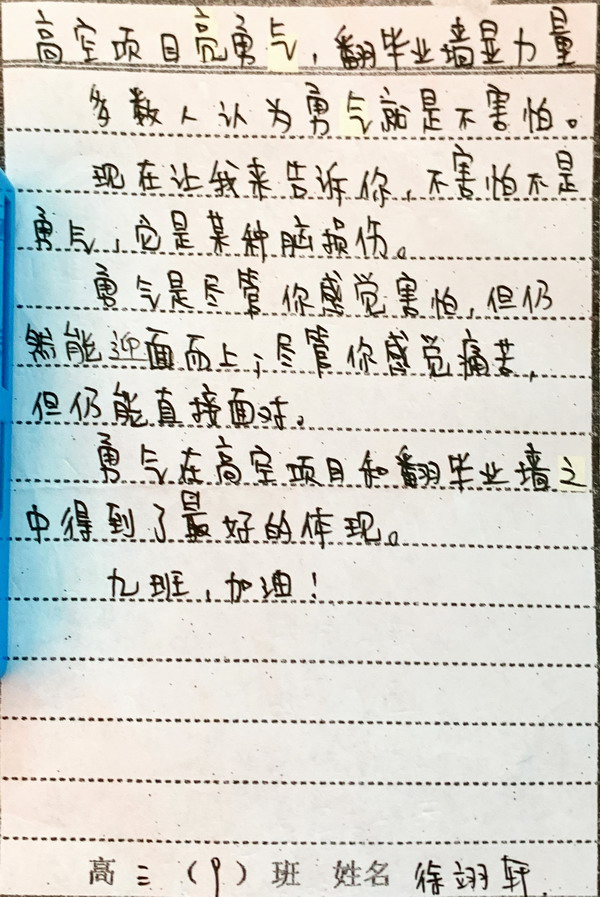 高空项目亮勇气，翻毕业墙显力量
多数人认为勇气就是不害怕。
现在让我来告诉你，不害怕不是
勇气，它是某种脑损伤。
勇气是尽管你感觉害怕，但仍
然能迎面而上；尽管你感觉痛苦，
但仍能直接面对。
勇气在高空项目和翻毕业墙之
中得到了最好的体现。
九班，加油！
高二（9）班 姓名 徐翊轩